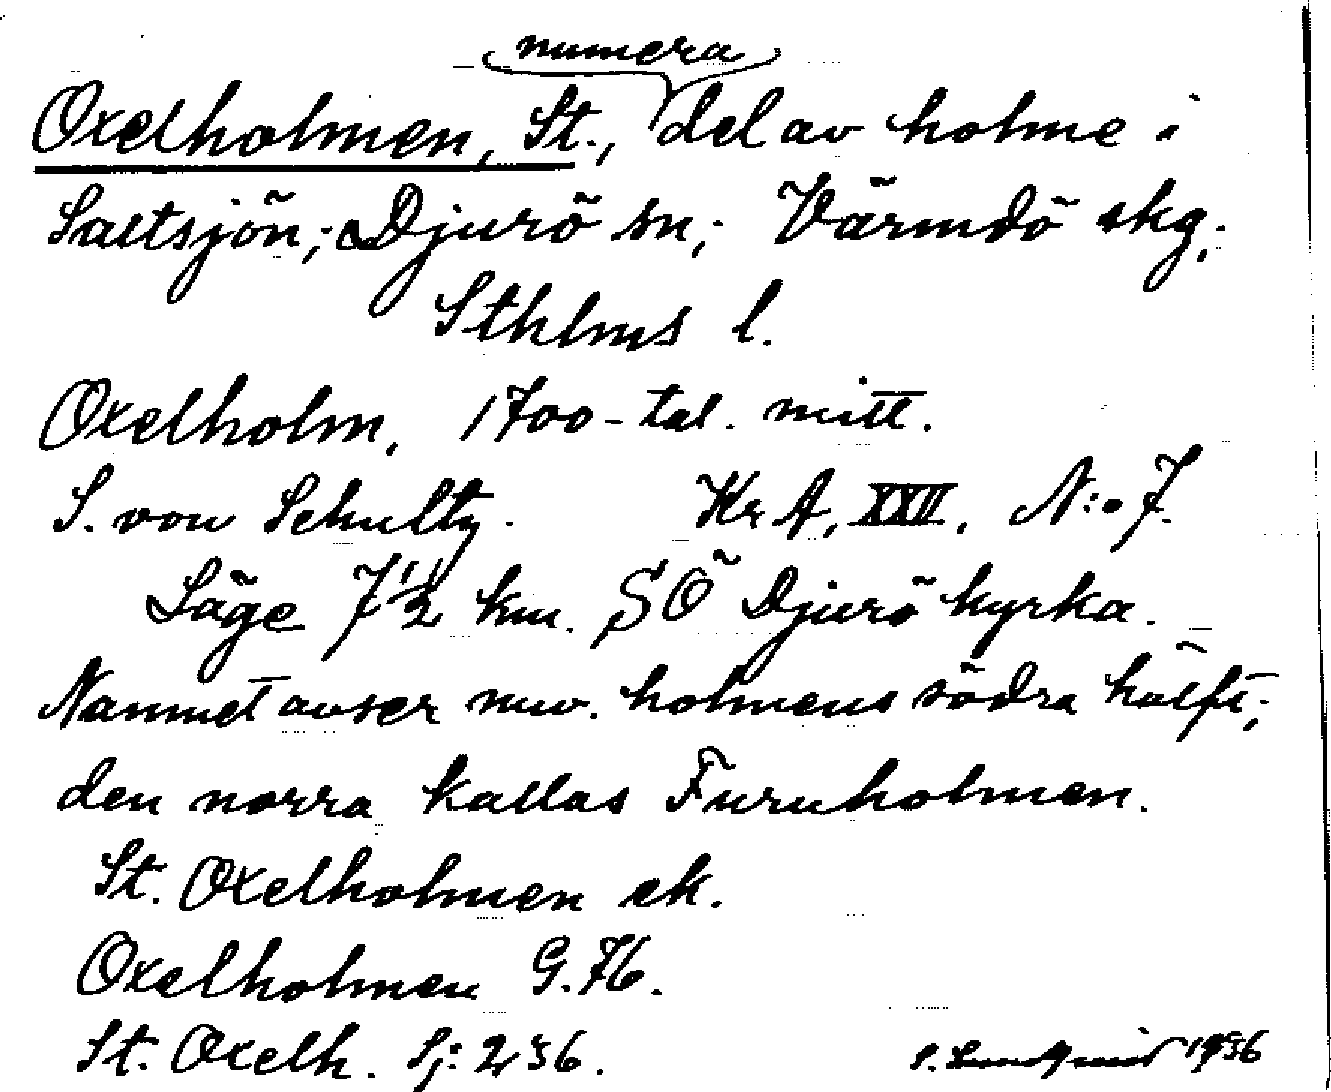 numera
Oxelholmen, St., del av holme i
Saltsjön; Djurö sn; Värmdö skg;
Sthlms l.
Oxelholm, 1700-tal. mitt.
S. von Schultz. Kr A, XXII, N:o 7.
Läge 7 1/2 km. SÖ Djurö kyrka.
Namnet avser nuv. holmens södra hälft;
den norra kallas Furuholmen.
St. Oxelholmen ek.
Oxelholmen G.76.
St. Oxelh. Sj: 236. S. Lundqvist 1936